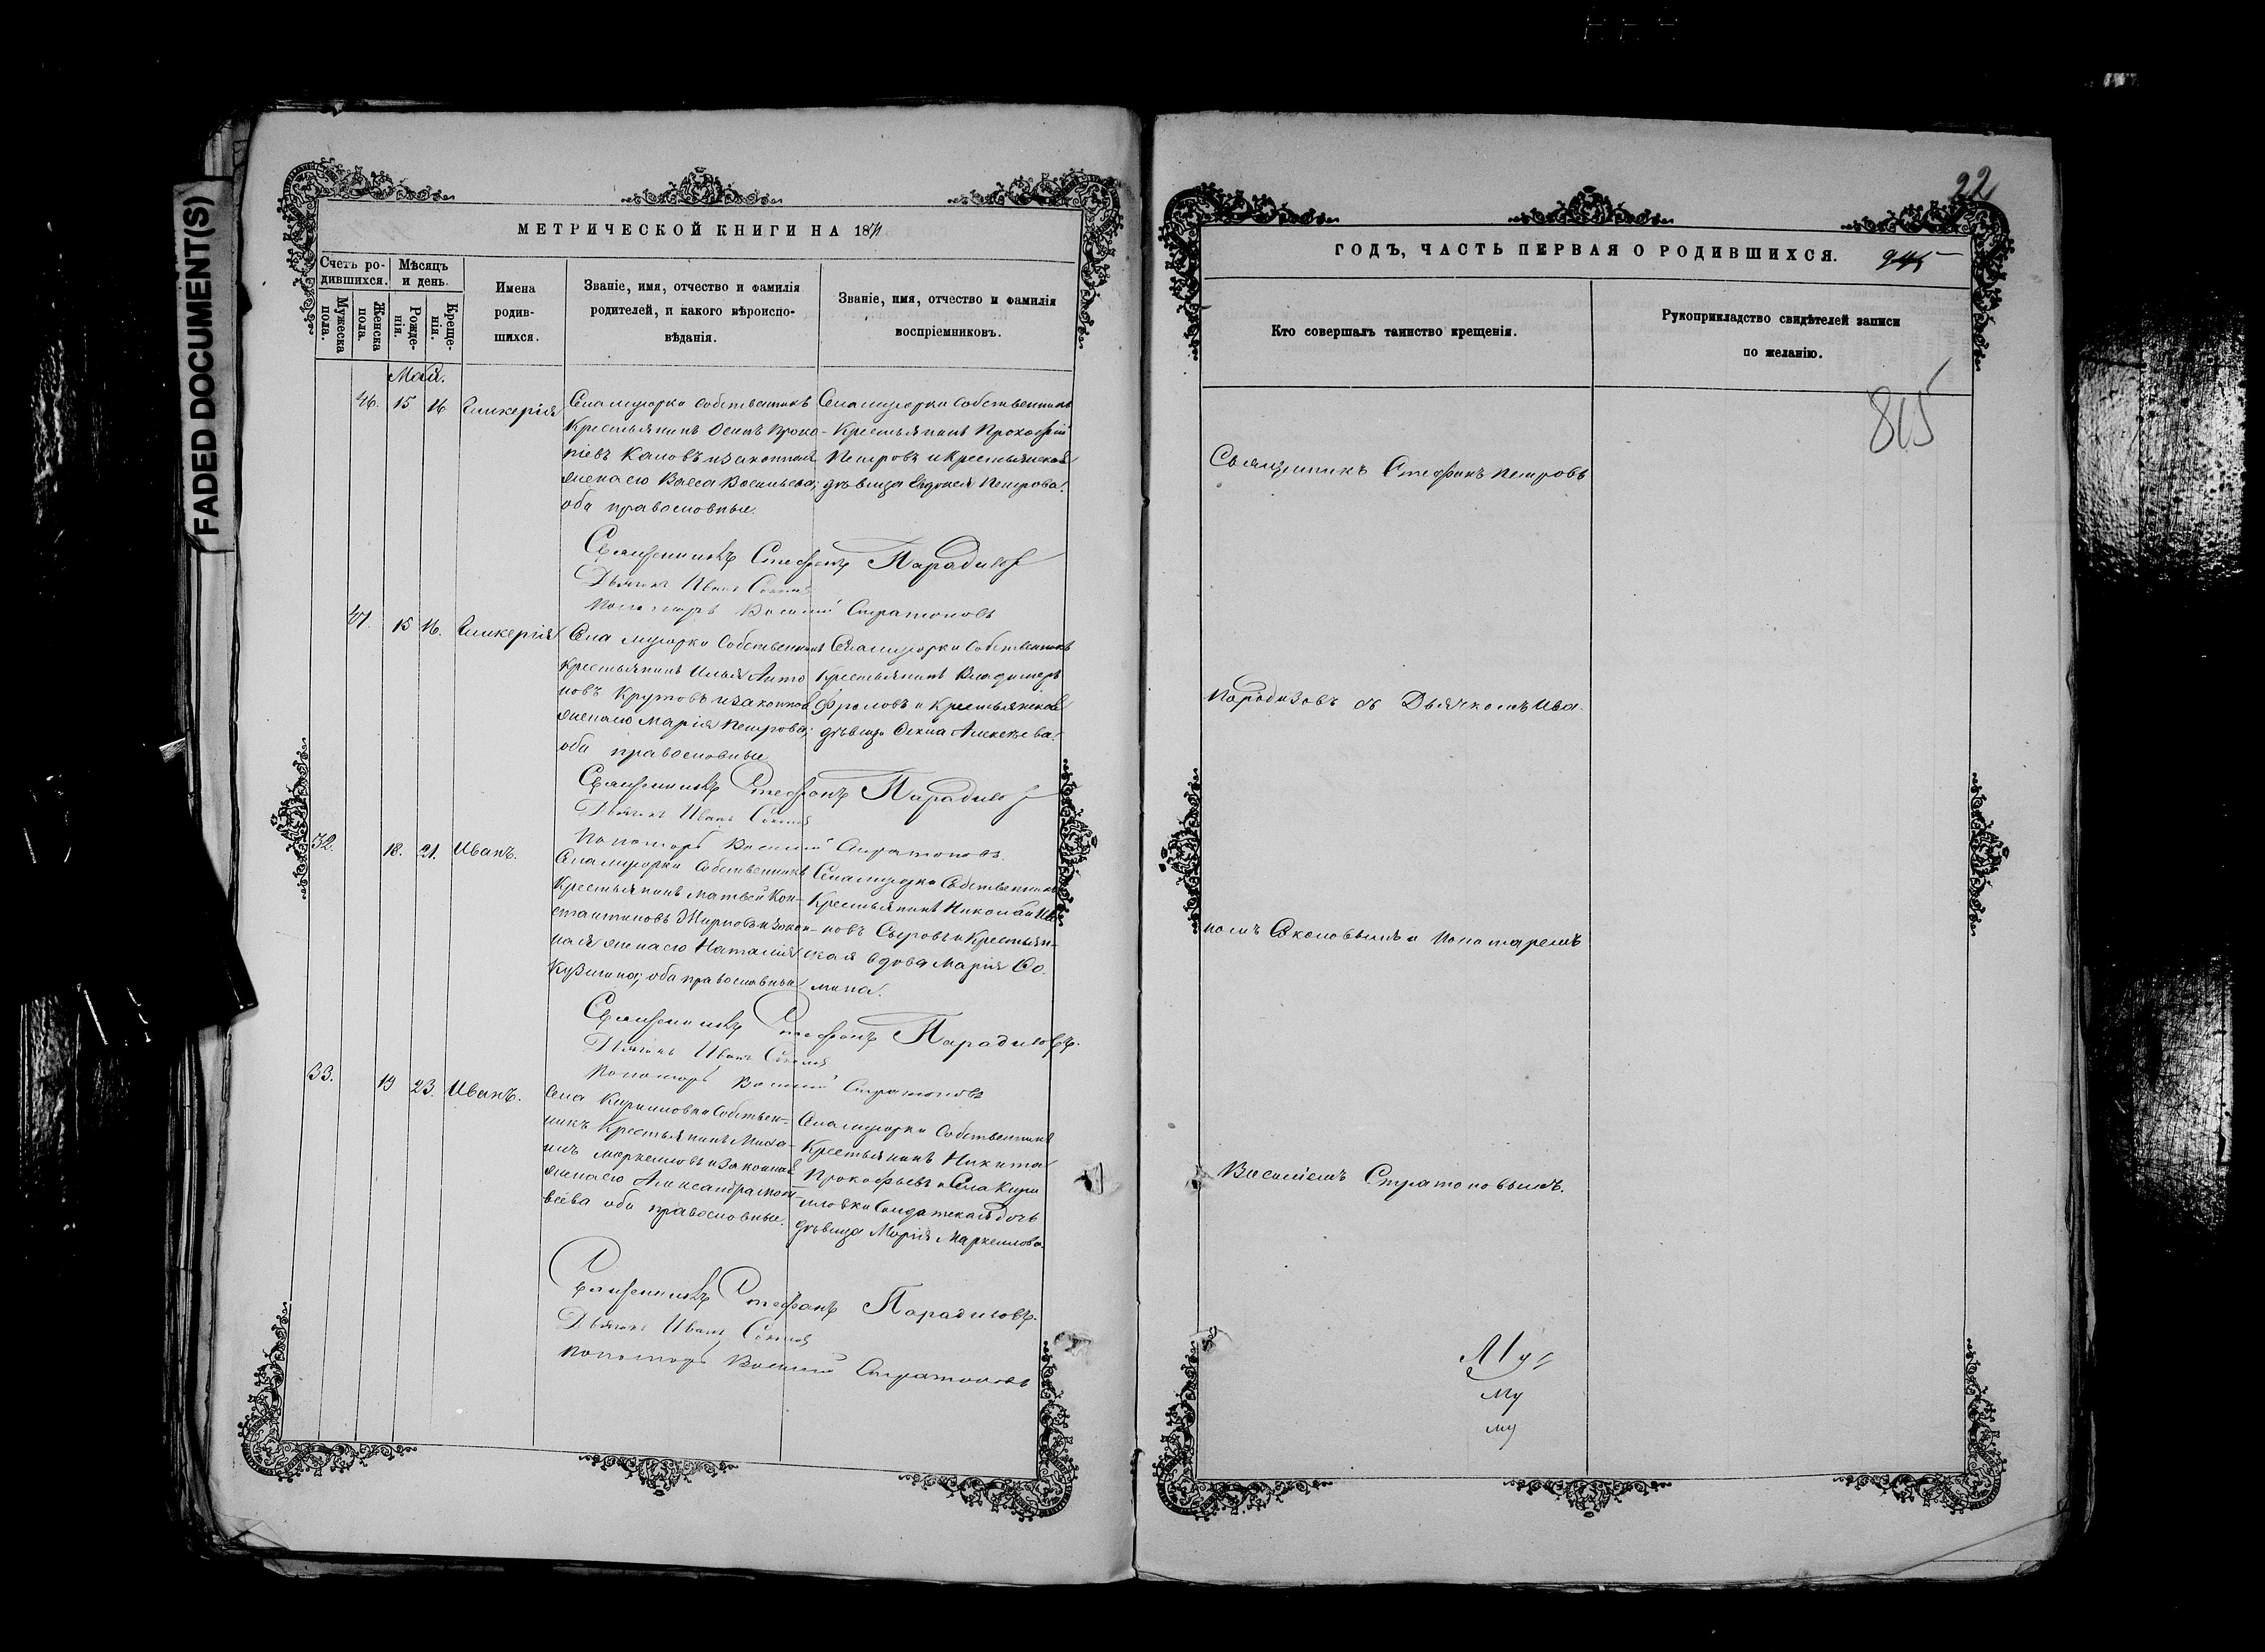 FADED DOCUMENT(S)
МЕТРИЧЕСКОЙ КНИГИ НА 1871
Счетъ ро-
дившихся.
Мѣсяцъ
и день.
Мужеска
пола.
Женска
пола.
Рожде-
нія.
Креще-
нія.
Имена
родив-
шихся.
Званіе, имя, отчество и фамилія
родителей, и какого вѣроиспо-
вѣданія.
Званіе, имя, отчество и фамилія
воспріемниковъ.
Май.
46. 15 16 Гликерія
Села собственникъ
Крестьянинъ Осипъ Проко-
піевъ и законная
жена его Васса Васильева;
оба православные.
Села собственникъ
Крестьянинъ Прокофій
Петровъ и Крестьянская
дѣвица Евдокія Петрова.
Священникъ Стефанъ Парадизовъ
Дьячекъ Иванъ
Пономарь Василій Стратоновъ
47. 15 16. Гликерія
Села Собственникъ
Крестьянинъ Илья Анто
новъ Крутовъ и законная
жена его Марія Петрова;
оба православные
Села Собственникъ
Крестьянинъ Владимеръ
Фроловъ и Крестьянская
дѣвица Алексѣева.
Священникъ Стефанъ Парадизовъ
Дьячекъ Иванъ
Пономарь Василій Стратоновъ
32. 18. 21. Иванъ.
Села Собственникъ
Крестьянинъ Матвей Кон-
стантиновъ и закон-
ная жена его Наталія
Кузмина; оба православные
Села Собственникъ
Крестьянинъ Николай Ива
новъ Сыровъ и Крестьян-
ская вдова Марія Фо.
мина.
Священникъ Стефанъ Парадизовъ.
Дьячекъ Иванъ
Пономарь Василій Стратоновъ
33. 19 23. Иванъ.
Села Кириловки Собствен-
никъ Крестьянинъ Миха-
илъ Маркелловъ и законная
жена его Александра Мат-
вѣева оба православные.
Села Собственникъ
Крестьянинъ Никита
Прокофьевъ и Села Кири
ловки Солдатская дочь
дѣвица Марія Маркеллова.
Священникъ Стефанъ Парадизовъ.
Дьячекъ Иванъ
Пономарь Василій Стратоновъ
22
ГОДЪ, ЧАСТЬ ПЕРВАЯ О РОДИВШИХСЯ.
Кто совершалъ таинство крещенія.
Рукоприкладство свидѣтелей записи
по желанію.
815
Священникъ Стефанъ Петровъ
Парадизовъ съ Дьячкомъ Ива-
номъ и Пономаремъ
Василіемъ Стратоновымъ.
Му
му